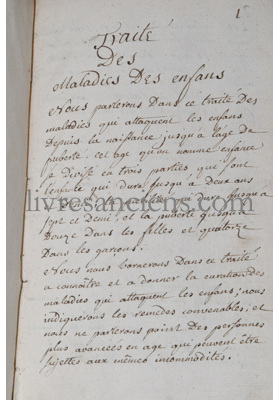 1
Traité
Des
Maladies Des enfans
Nous parlerons Dans ce traité Des
maladies qui attaquent les enfans
Depuis la naissance jusqu'a lage de
puberté. cet age qu'on nomme enfance
se divise en trois parties qui sont
l'enfance qui dure jusqu a Deux ans
jusqu a
livresanciens.com
sept et demi, et la puberté jusqua
Douze Dans les filles et quatorze
Dans les garçons.
Nous nous bornerons Dans ce traité
a connoitre et a donner la curation des
maladies qui attaquent les enfans; nous
indiquerons les remedes convenables; et
nous ne parlerons point Des personnes
plus avancées en age qui peuvent être
sujettes aux mêmes incommodités.